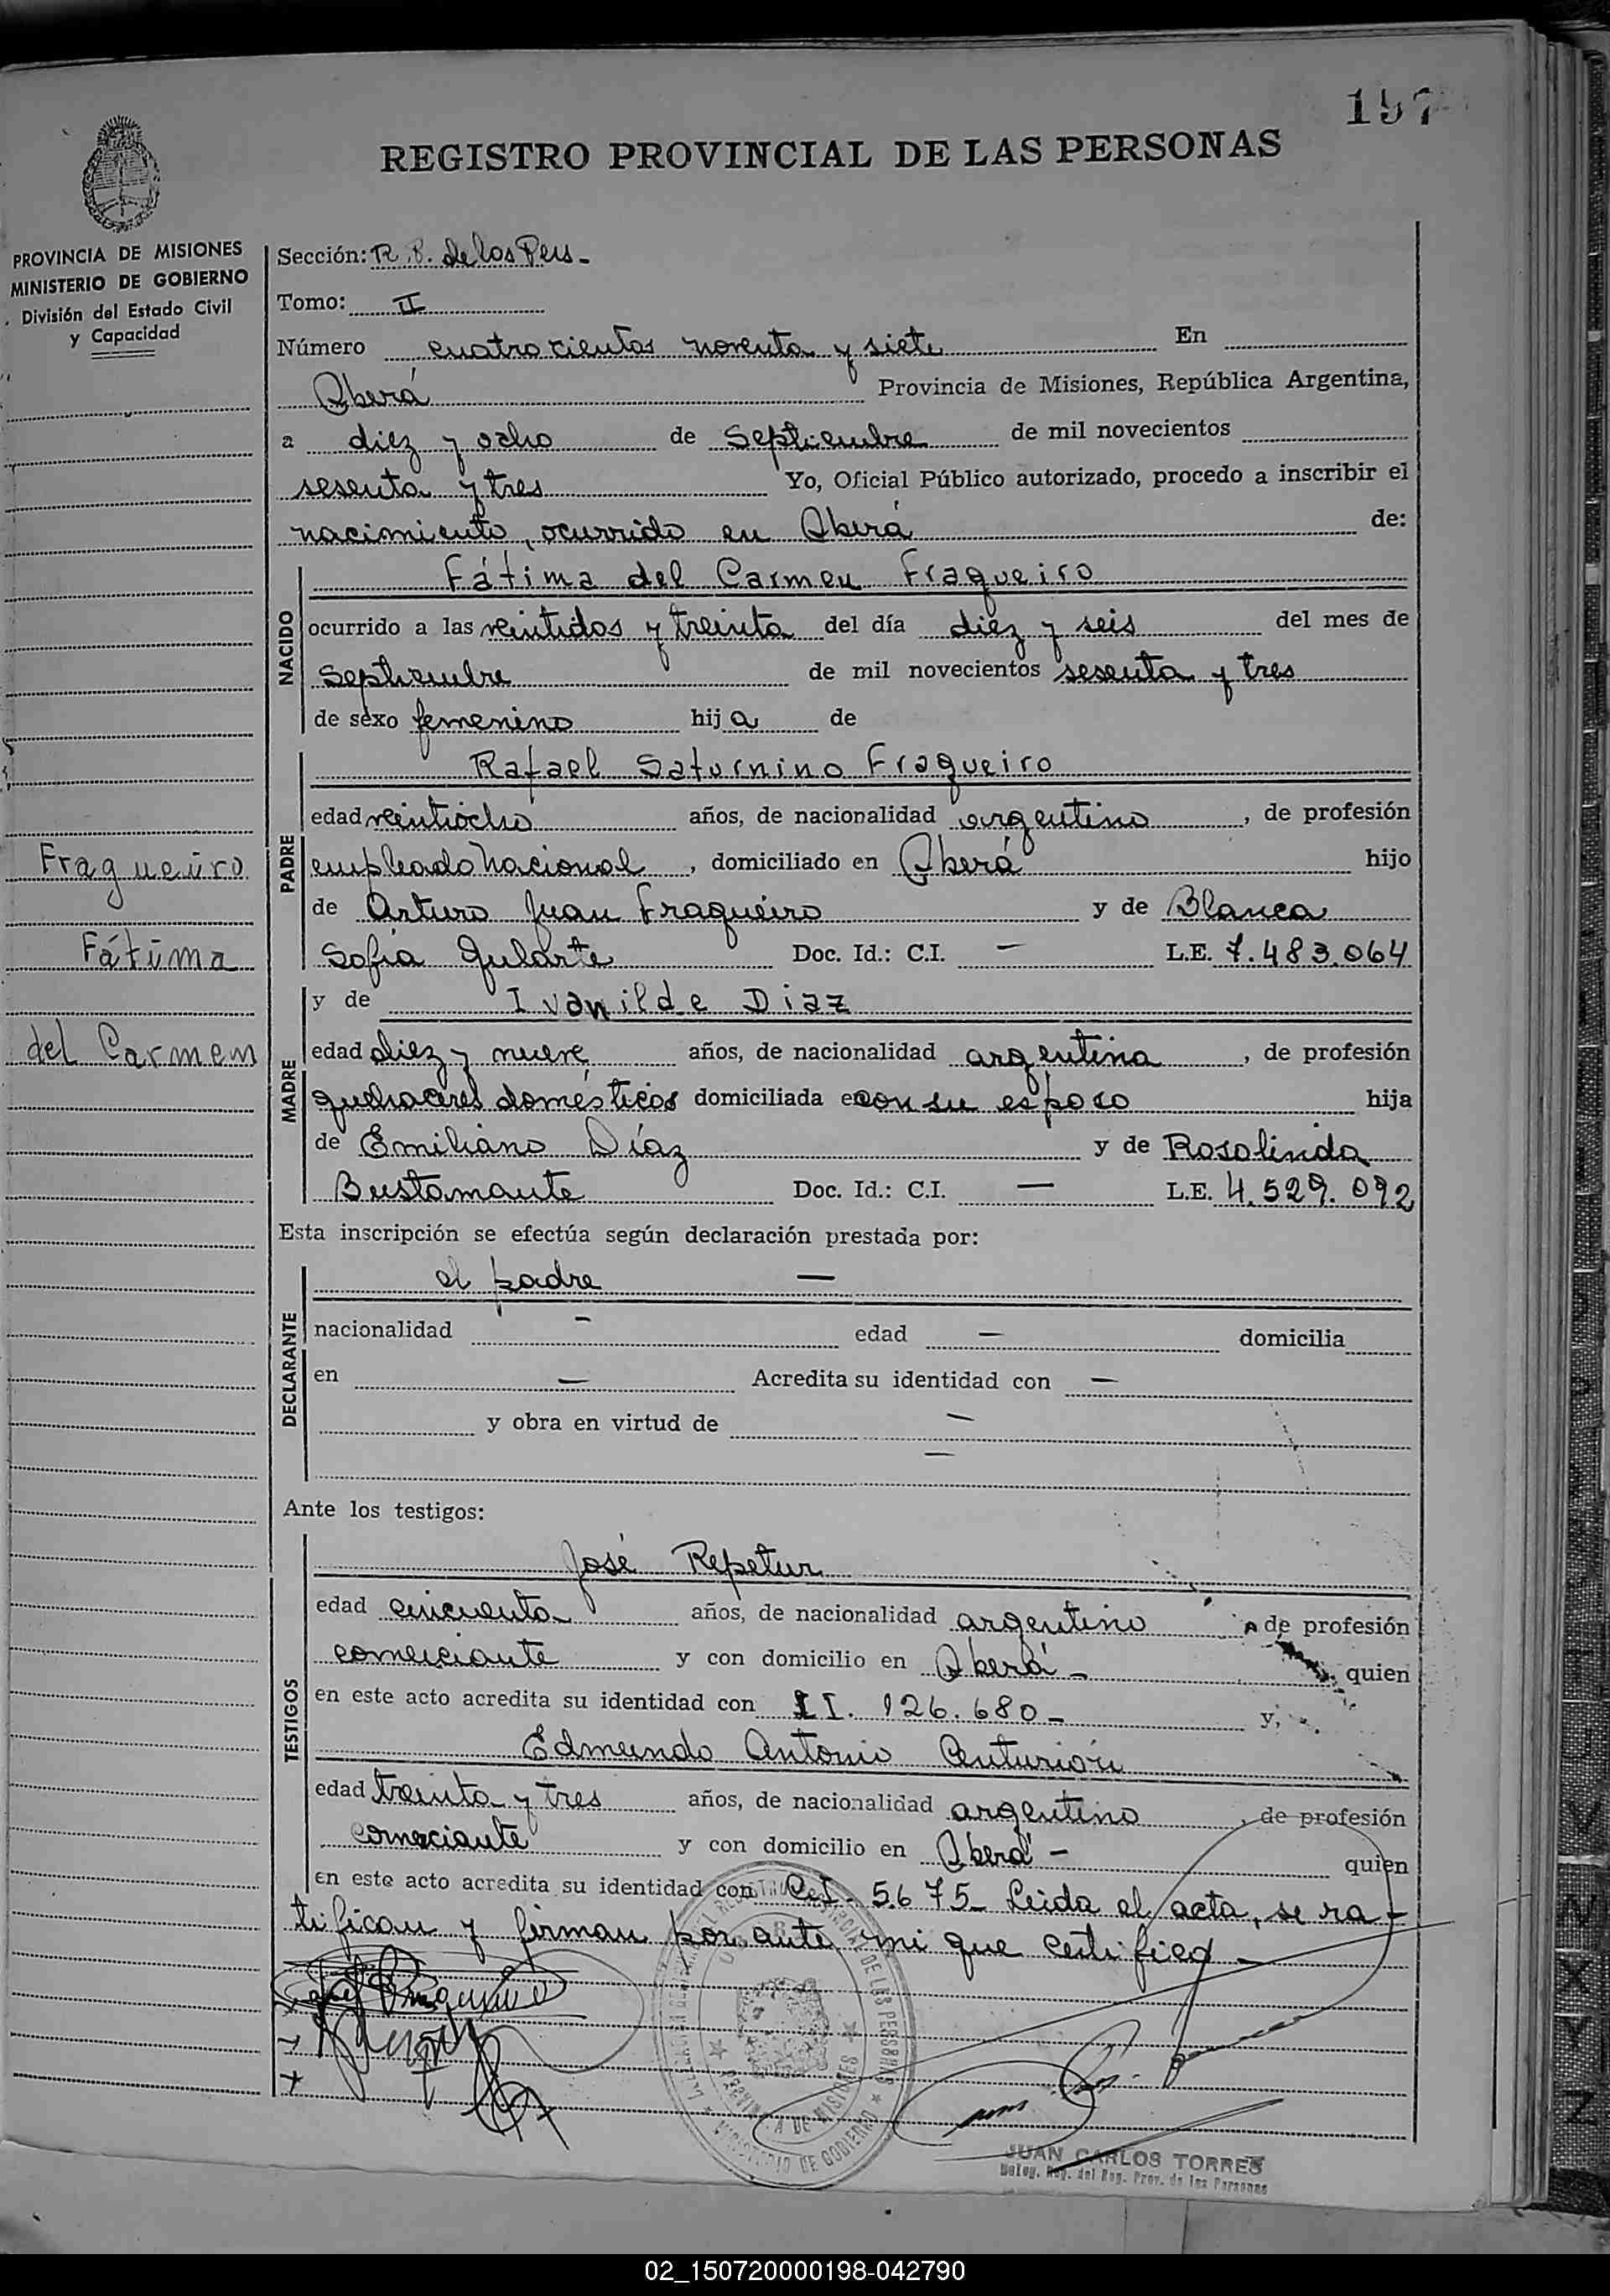 197
REGISTRO PROVINCIAL DE LAS PERSONAS
PROVINCIA DE MISIONES
MINISTERIO DE GOBIERNO
División del Estado Civil
y Capacidad
Fragueiro
Fátima
del Carmen
Sección: R.P. de los Pers.
Tomo: II
Número cuatrocientos noventa y siete En
Oberá Provincia de Misiones, República Argentina,
a diez y ocho de Septiembre de mil novecientos
sesenta y tres Yo, Oficial Público autorizado, procedo a inscribir el
nacimiento, ocurrido en Oberá de:
NACIDO
Fátima del Carmen Fragueiro
ocurrido a las veintidos y treinta del día diez y seis del mes de
Septiembre de mil novecientos sesenta y tres
de sexo femenino hija de
PADRE
Rafael Saturnino Fragueiro
edad veintiocho años, de nacionalidad argentino, de profesión
empleado Nacional, domiciliado en Oberá hijo
de Arturo Juan Fragueiro y de Blanca
Sofia Gularte Doc. Id.: C.I. — L.E. 7.483.064
MADRE
y de Ivanilde Diaz
edad diez y nueve años, de nacionalidad argentina, de profesión
quehaceres domésticos domiciliada en con su esposo hija
de Emiliano Díaz y de Rosalinda
Bustamante Doc. Id.: C.I. — L.E. 4.529.092
Esta inscripción se efectúa según declaración prestada por:
DECLARANTE
el padre —
nacionalidad — edad — domicilia
en — Acredita su identidad con —
y obra en virtud de —
—
Ante los testigos:
TESTIGOS
José Repetur
edad cincuenta años, de nacionalidad argentino, de profesión
comerciante y con domicilio en Oberá - quien
en este acto acredita su identidad con II. 126.680 - y,
Edmundo Antonio Centurión
edad treinta y tres años, de nacionalidad argentino, de profesión
comerciante y con domicilio en Oberá - quien
en este acto acredita su identidad con C.I. 5.675 - Leida el acta, se ra-
tifican y firman por ante mi que certifico -
PROVINCIA DE MISIONES
MINISTERIO DE GOBIERNO
JUAN CARLOS TORRES
Deleg. Reg. del Reg. Prov. de las Personas
02_150720000198-042790